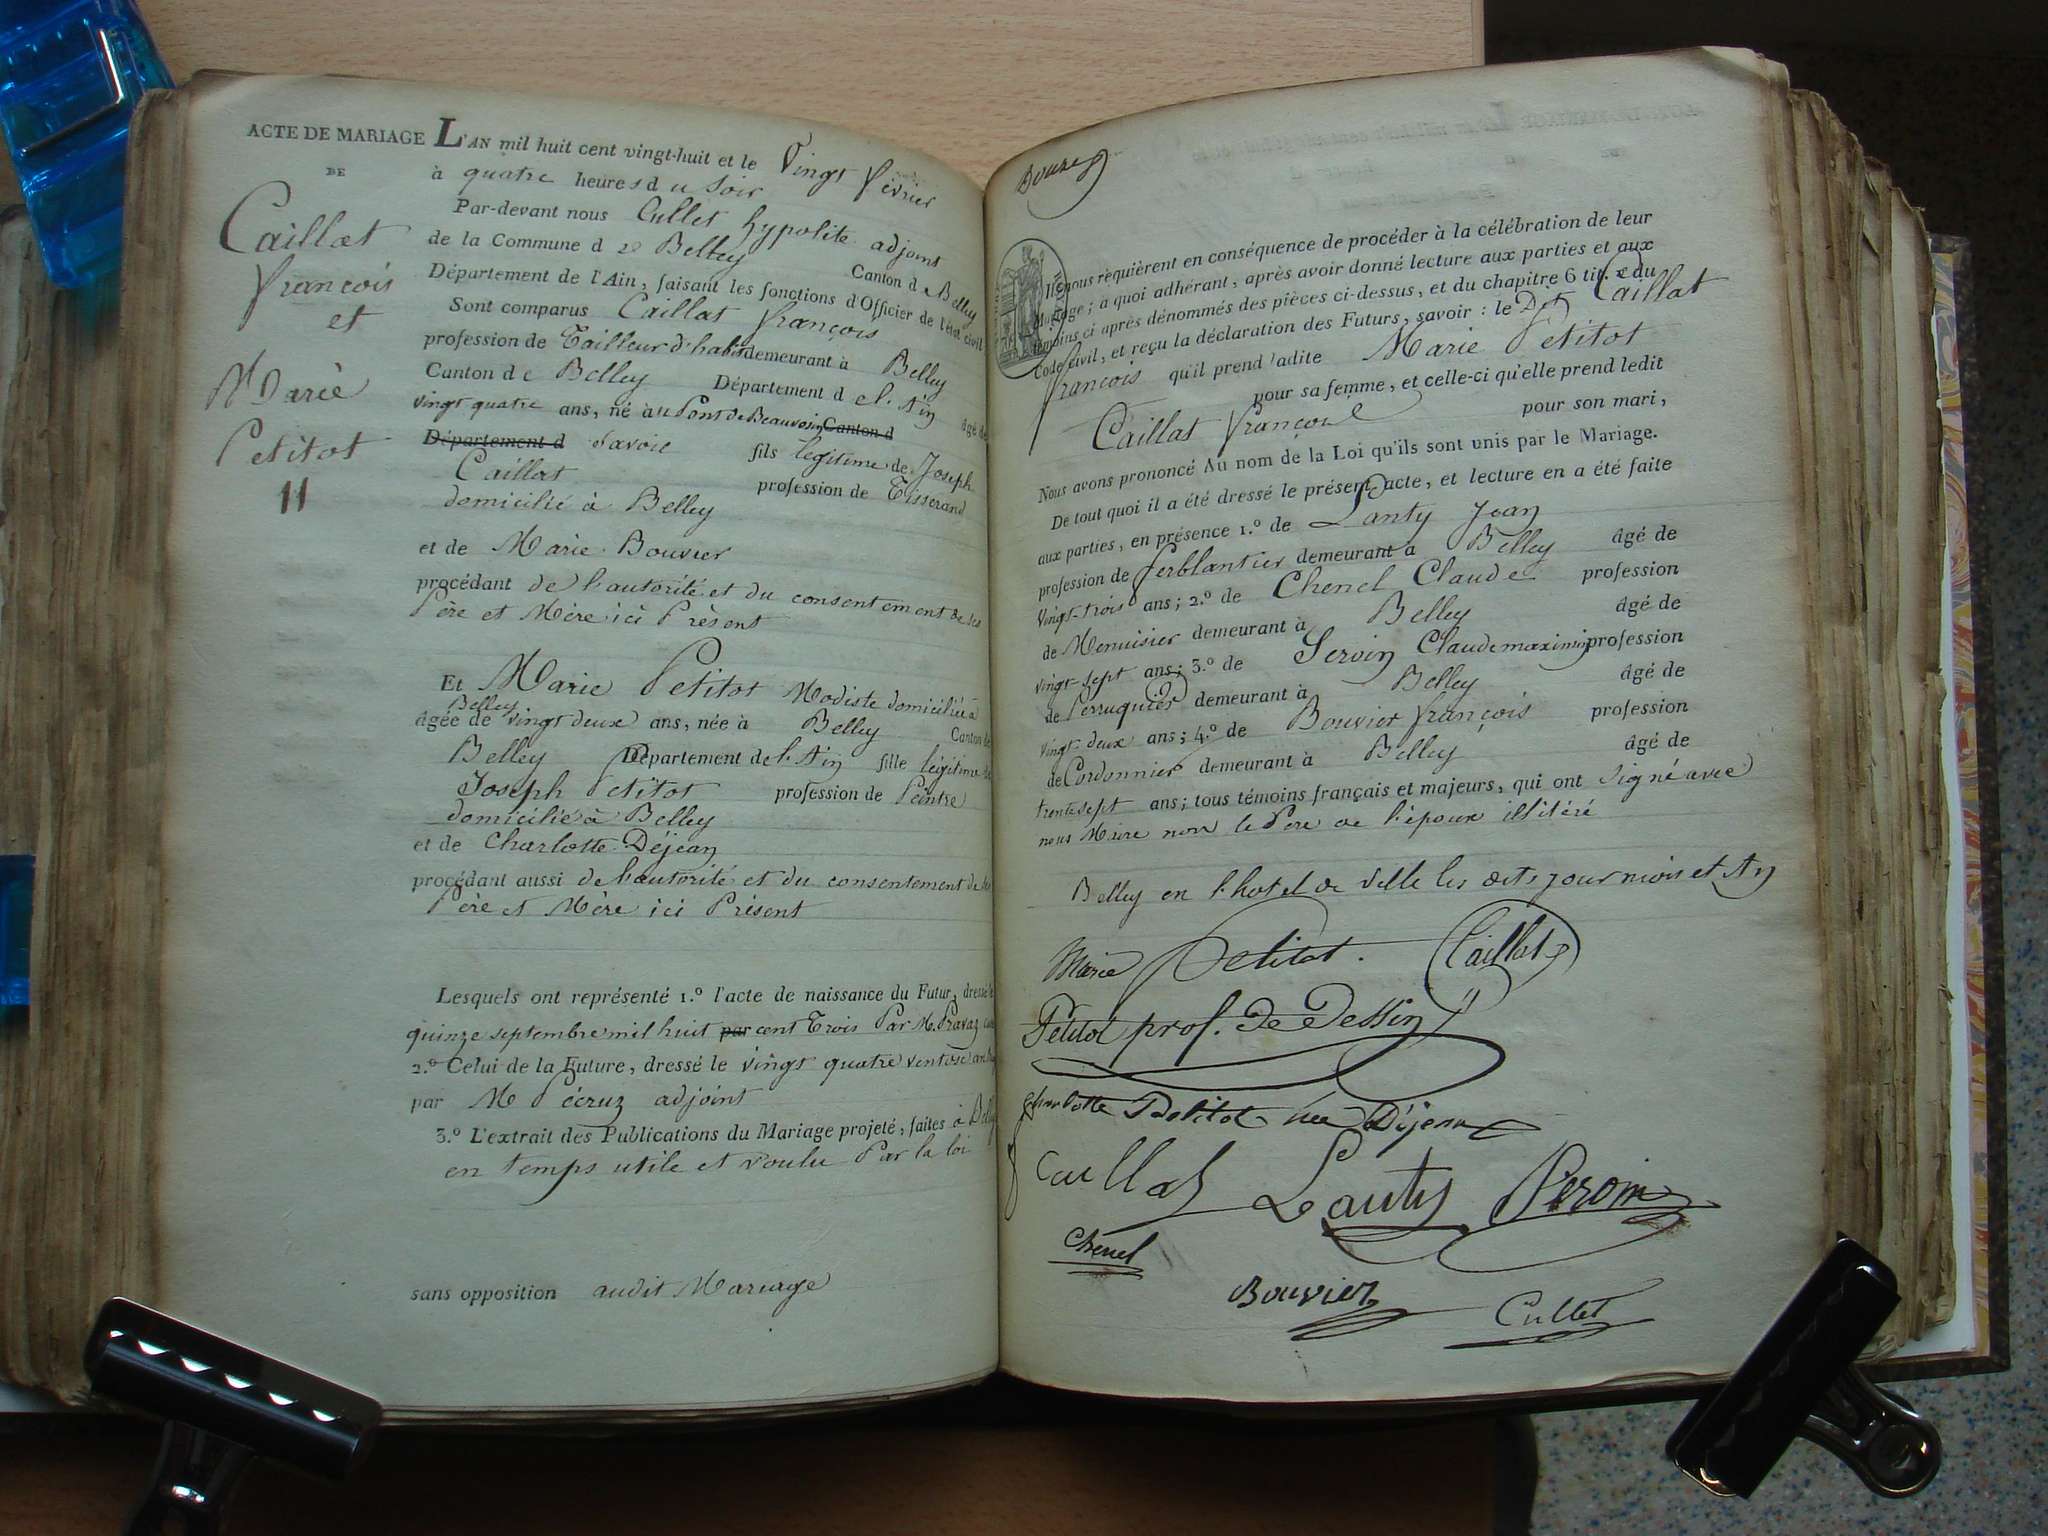 ACTE DE MARIAGE
DE
Caillat
François
et
Marie
Petitot
11
L'AN mil huit cent vingt-huit et le Vingt février
à quatre heures du Soir
Par-devant nous Cullet hypolite adjoint
de la Commune d de Belley Canton de Belley
Département de l'Ain, faisant les fonctions d'Officier de l'état civil
Sont comparus Caillat François
profession de Tailleur d'habit demeurant à Belley
Canton de Belley Département de l'Ain âgé de
vingt quatre ans, né à au Pont de Beauvoisin Canton d
Département d Savoie fils légitime de Joseph
Caillat profession de Tisserand
domicilié à Belley
et de Marie Bouvier
procédant de l'autorité et du consentement de ses
Père et Mère ici Présent
Et Marie Petitot Modiste domiciliée à
Belley
âgée de vingt deux ans, née à Belley Canton de
Belley Département de l'Ain fille légitime de
Joseph Petitot profession de Peintre
domicilié à Belley
et de Charlotte Déjean
procédant aussi de l'autorité et du consentement de ses
Père et Mère ici Présent
Lesquels ont représenté 1.º l'acte de naissance du Futur, dressé le
quinze septembre mil huit par cent Trois Par M. Pravaz
2.º Celui de la Future, dressé le vingt quatre ventose an
par M Pécruz adjoint
3.º L'extrait des Publications du Mariage projeté, faites à Belley
en temps utile et voulu Par la loi
sans opposition audit Mariage
Il nous requièrent en conséquence de procéder à la célébration de leur
Mariage; a quoi adhérant, après avoir donné lecture aux parties et aux
témoins ci après dénommés des pièces ci-dessus, et du chapitre 6 tit. e du
Code civil, et reçu la déclaration des Futurs, savoir: le Dit Caillat
François qu'il prend ladite Marie Petitot
pour sa femme, et celle-ci qu'elle prend ledit
Caillat François pour son mari,
Nous avons prononcé Au nom de la Loi qu'ils sont unis par le Mariage.
De tout quoi il a été dressé le présent acte, et lecture en a été faite
aux parties, en présence 1.º de Lanty Jean
profession de ferblantier demeurant à Belley âgé de
vingt-trois ans; 2.º de Chenel Claude profession
de Menuisier demeurant à Belley âgé de
vingt-sept ans; 3.º de Servin Claude maximin profession
de Perruquier demeurant à Belley âgé de
vingt-deux ans; 4.º de Bouvier François profession
de Cordonnier demeurant à Belley âgé de
trente sept ans; tous témoins français et majeurs, qui ont signé avec
nous Mère non le Père de l'époux illitéré
Belley en l'hotel de ville les dits jour mois et An
Marie Petitot. Caillat
Petitot prof. de Dessin
Charlotte Petitot née Déjean
Caillat Lanty
Chenel
Bouvier Cullet